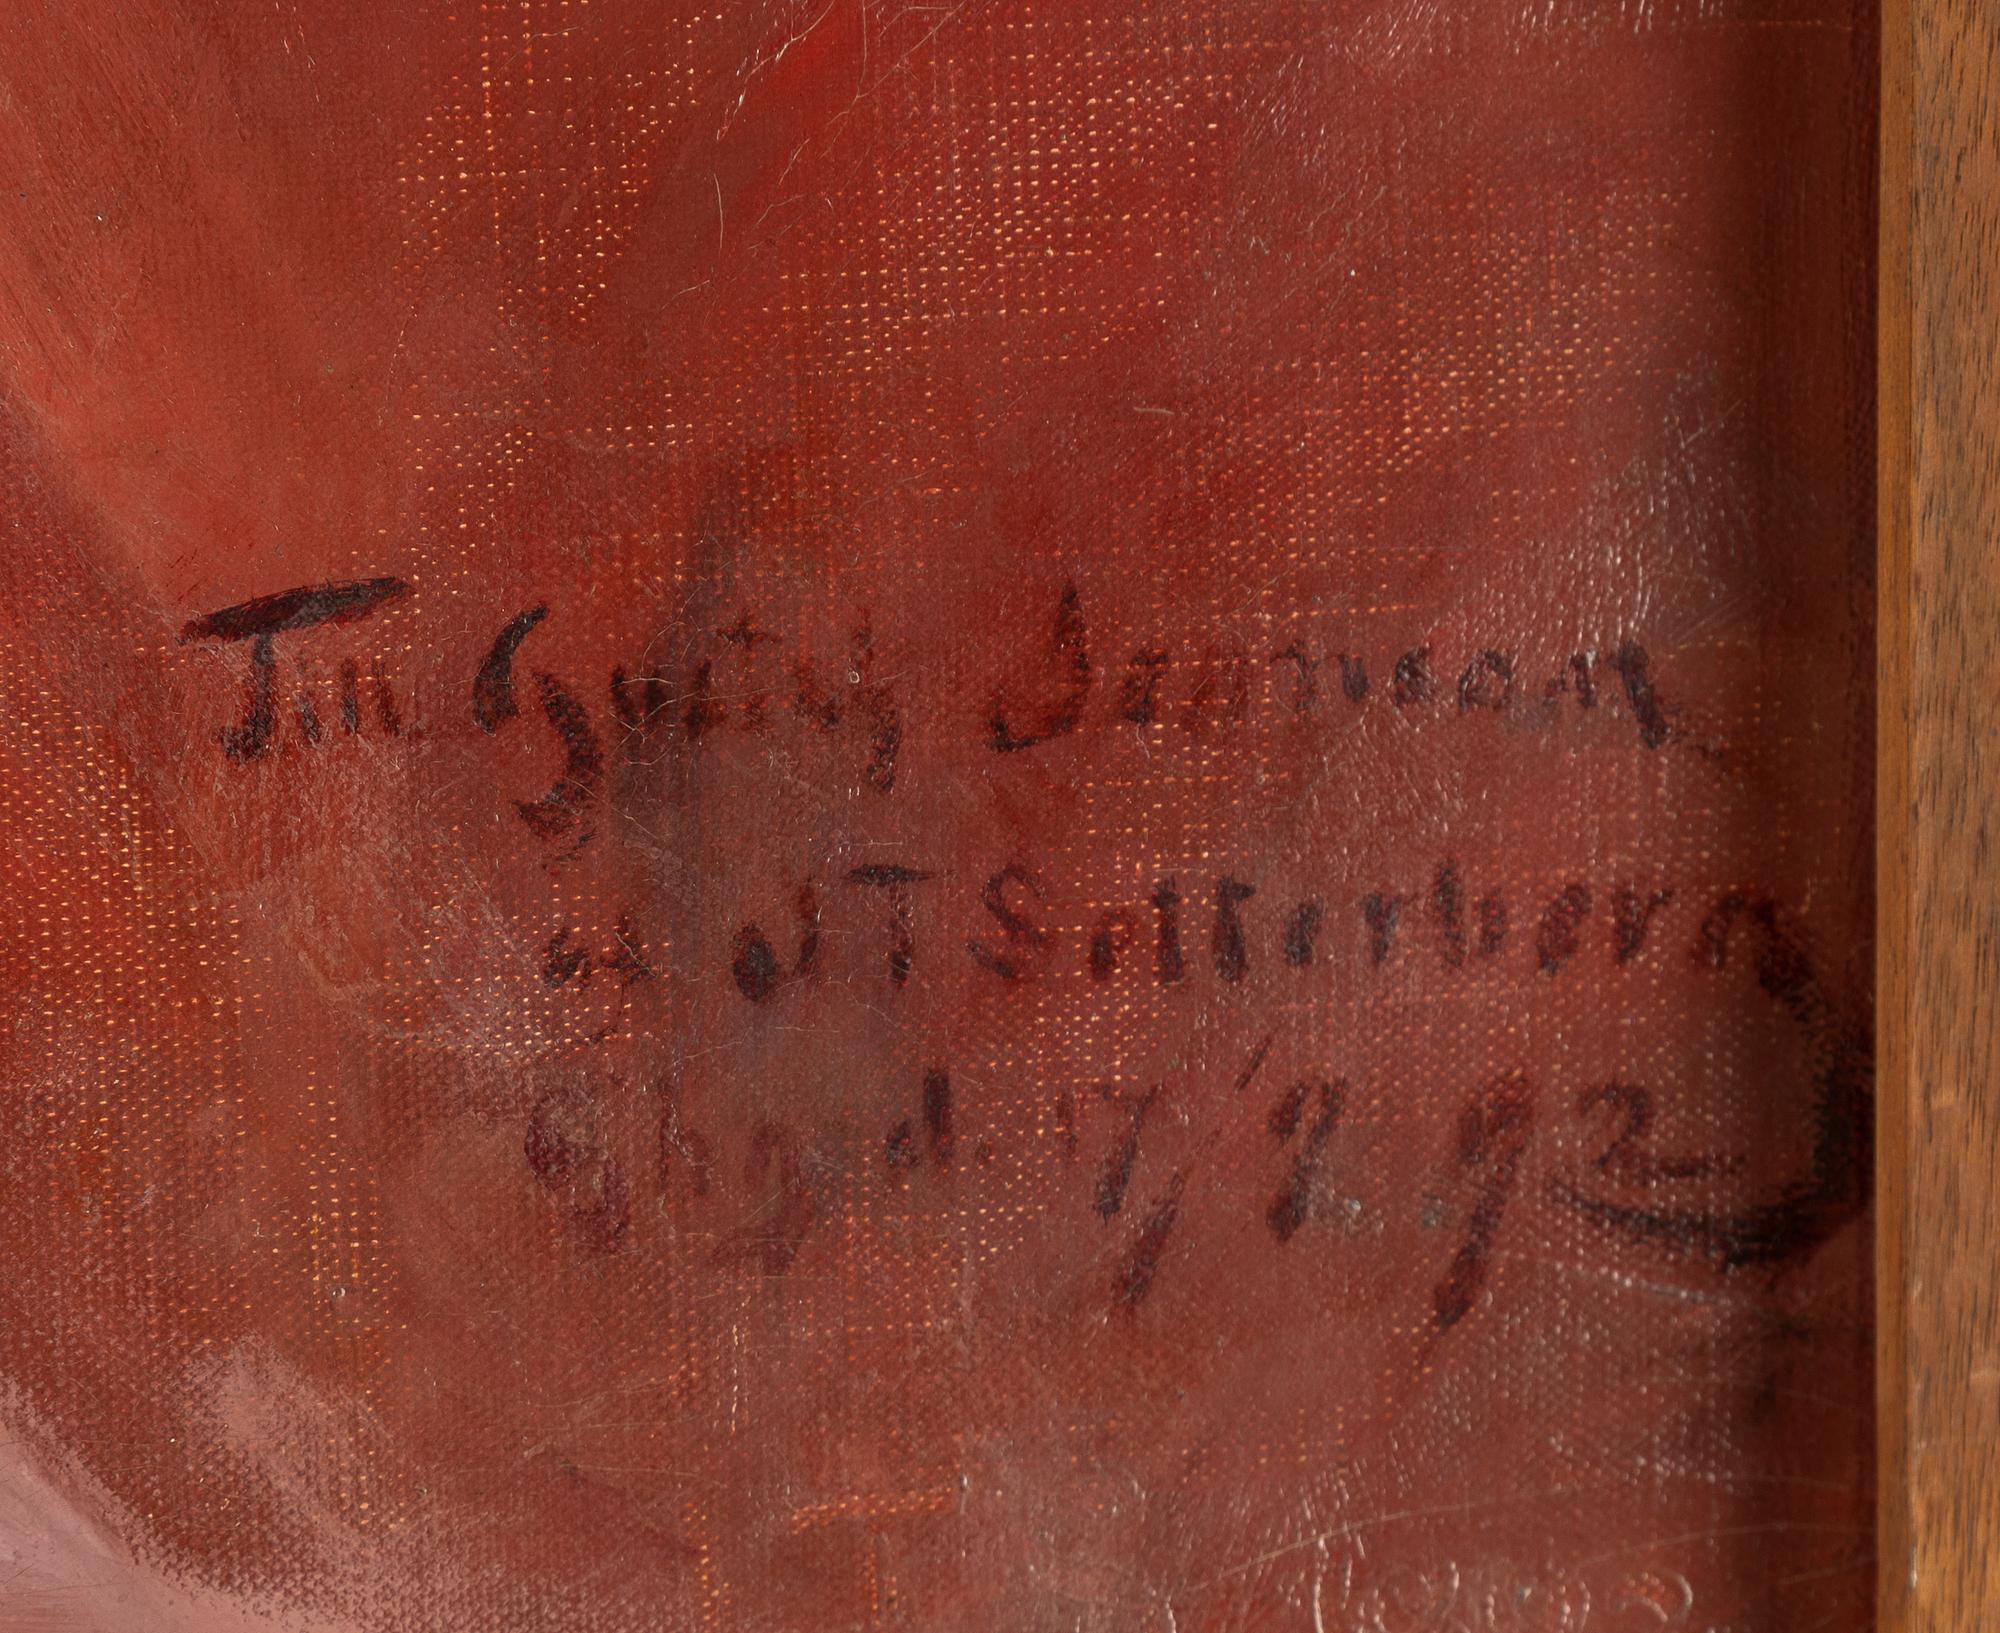 Till Gustaf Jansson
af J T Setterberg
d. 7/9. 92